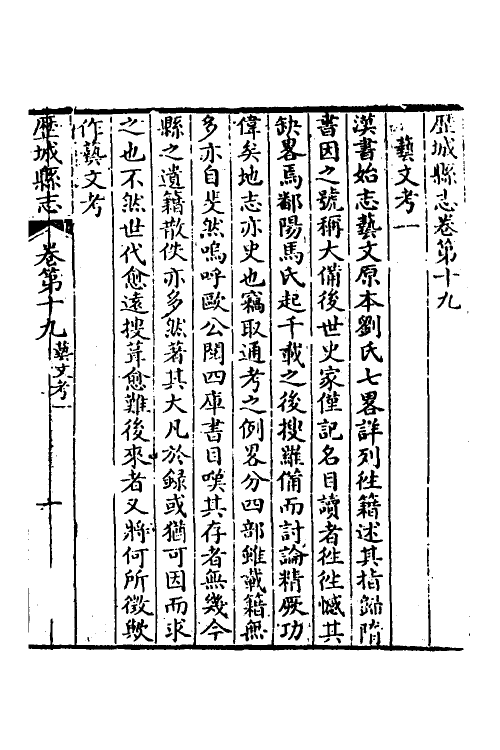 歷城縣志卷第十九
藝文考一
漢書始志藝文原本劉氏七畧詳列徃籍述其指歸隋
書因之號稱大備後世史家僅記名目讀者徃徃憾其
缺畧焉鄱陽馬氏起千載之後搜羅備而討論精厥功
偉矣地志亦史也竊取通考之例畧分四部雖載籍無
多亦自斐然嗚呼歐公閱四庫書目嘆其存者無幾今
縣之遺籍散佚亦多然著其大凡於録或猶可因而求
之也不然世代愈遠搜葺愈難後來者又將何所徵歟
作藝文考
歷城縣志
卷第十九
藝文考一
一